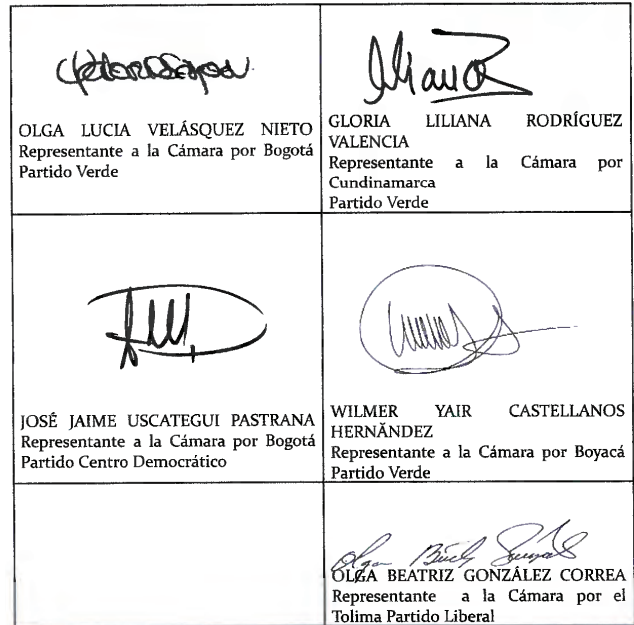 OLGA LUCIA VELÁSQUEZ NIETO
Representante a la Cámara por Bogotá
Partido Verde
GLORIA LILIANA RODRÍGUEZ
VALENCIA
Representante a la Cámara por
Cundinamarca
Partido Verde
JOSÉ JAIME USCATEGUI PASTRANA
Representante a la Cámara por Bogotá
Partido Centro Democrático
WILMER YAIR CASTELLANOS
HERNÁNDEZ
Representante a la Cámara por Boyacá
Partido Verde
OLGA BEATRIZ GONZÁLEZ CORREA
Representante a la Cámara por el
Tolima Partido Liberal